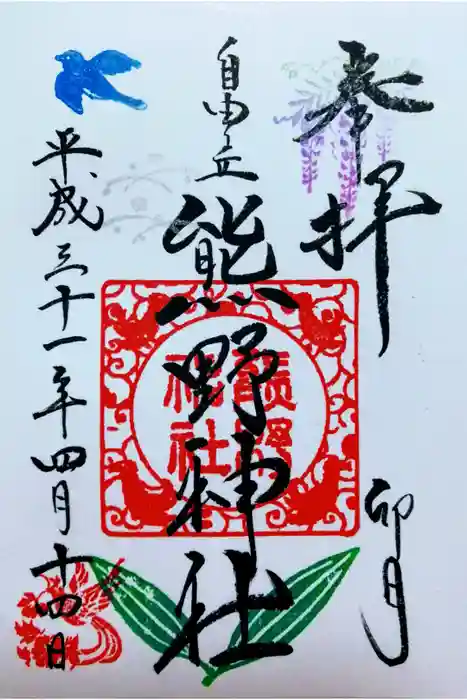 奉拝
卯月
自由ヶ丘
熊野神社
熊野
神社
平成三十一年四月十四日